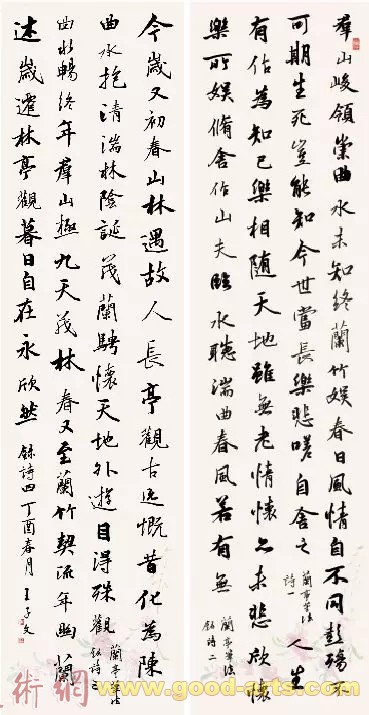 羣山峻領崇曲水未知終蘭竹娛春日風情自不同彭殤不
可期生死豈能知今世當長樂悲嗟自舍之 蘭亭筆法 詩一 人生
有估為知己樂相随天地雖無老情懷亦未悲欣懷
樂所娛脩舍作山夫臨水聽湍曲春風若有無 蘭亭筆法 録詩二
今歲又初春山林遇故人長亭觀古迹慨昔化為陳
曲水抱清湍林陰誕茂蘭騁懷天地外遊目得殊觀 蘭亭筆法 録詩三
曲水暢終年羣山極九天茂林春又至蘭竹契流年幽蘭
述歲遷林亭觀暮日自在永欣然 録詩四丁酉春月王子文
術網
www.good-arts.com